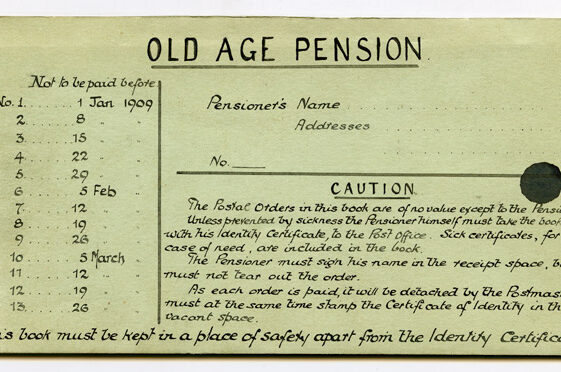 OLD AGE PENSION
Not to be paid before
No. 1. 1 Jan 1909
2. 8 " "
3. 15 " "
4. 22 " "
5. 29 " "
6. 5 Feb
7. 12 " "
8. 19 " "
9. 26 " "
10. 5 March
11. 12 " "
12. 19 " "
13. 26 " "
Pensioner's Name
Addresses
No.
CAUTION.
The Postal Orders in this book are of no value except to the Pensi
Unless prevented by sickness the Pensioner himself must take the book
with his Identity Certificate, to the Post Office. Sick certificates, for
case of need, are included in the book.
The Pensioner must sign his name in the receipt space, b
must not tear out the order.
As each order is paid, it will be detached by the Postmas
must at the same time stamp the Certificate of Identity in th
vacant space.
is book must be kept in a place of safety apart from the Identity Certifica